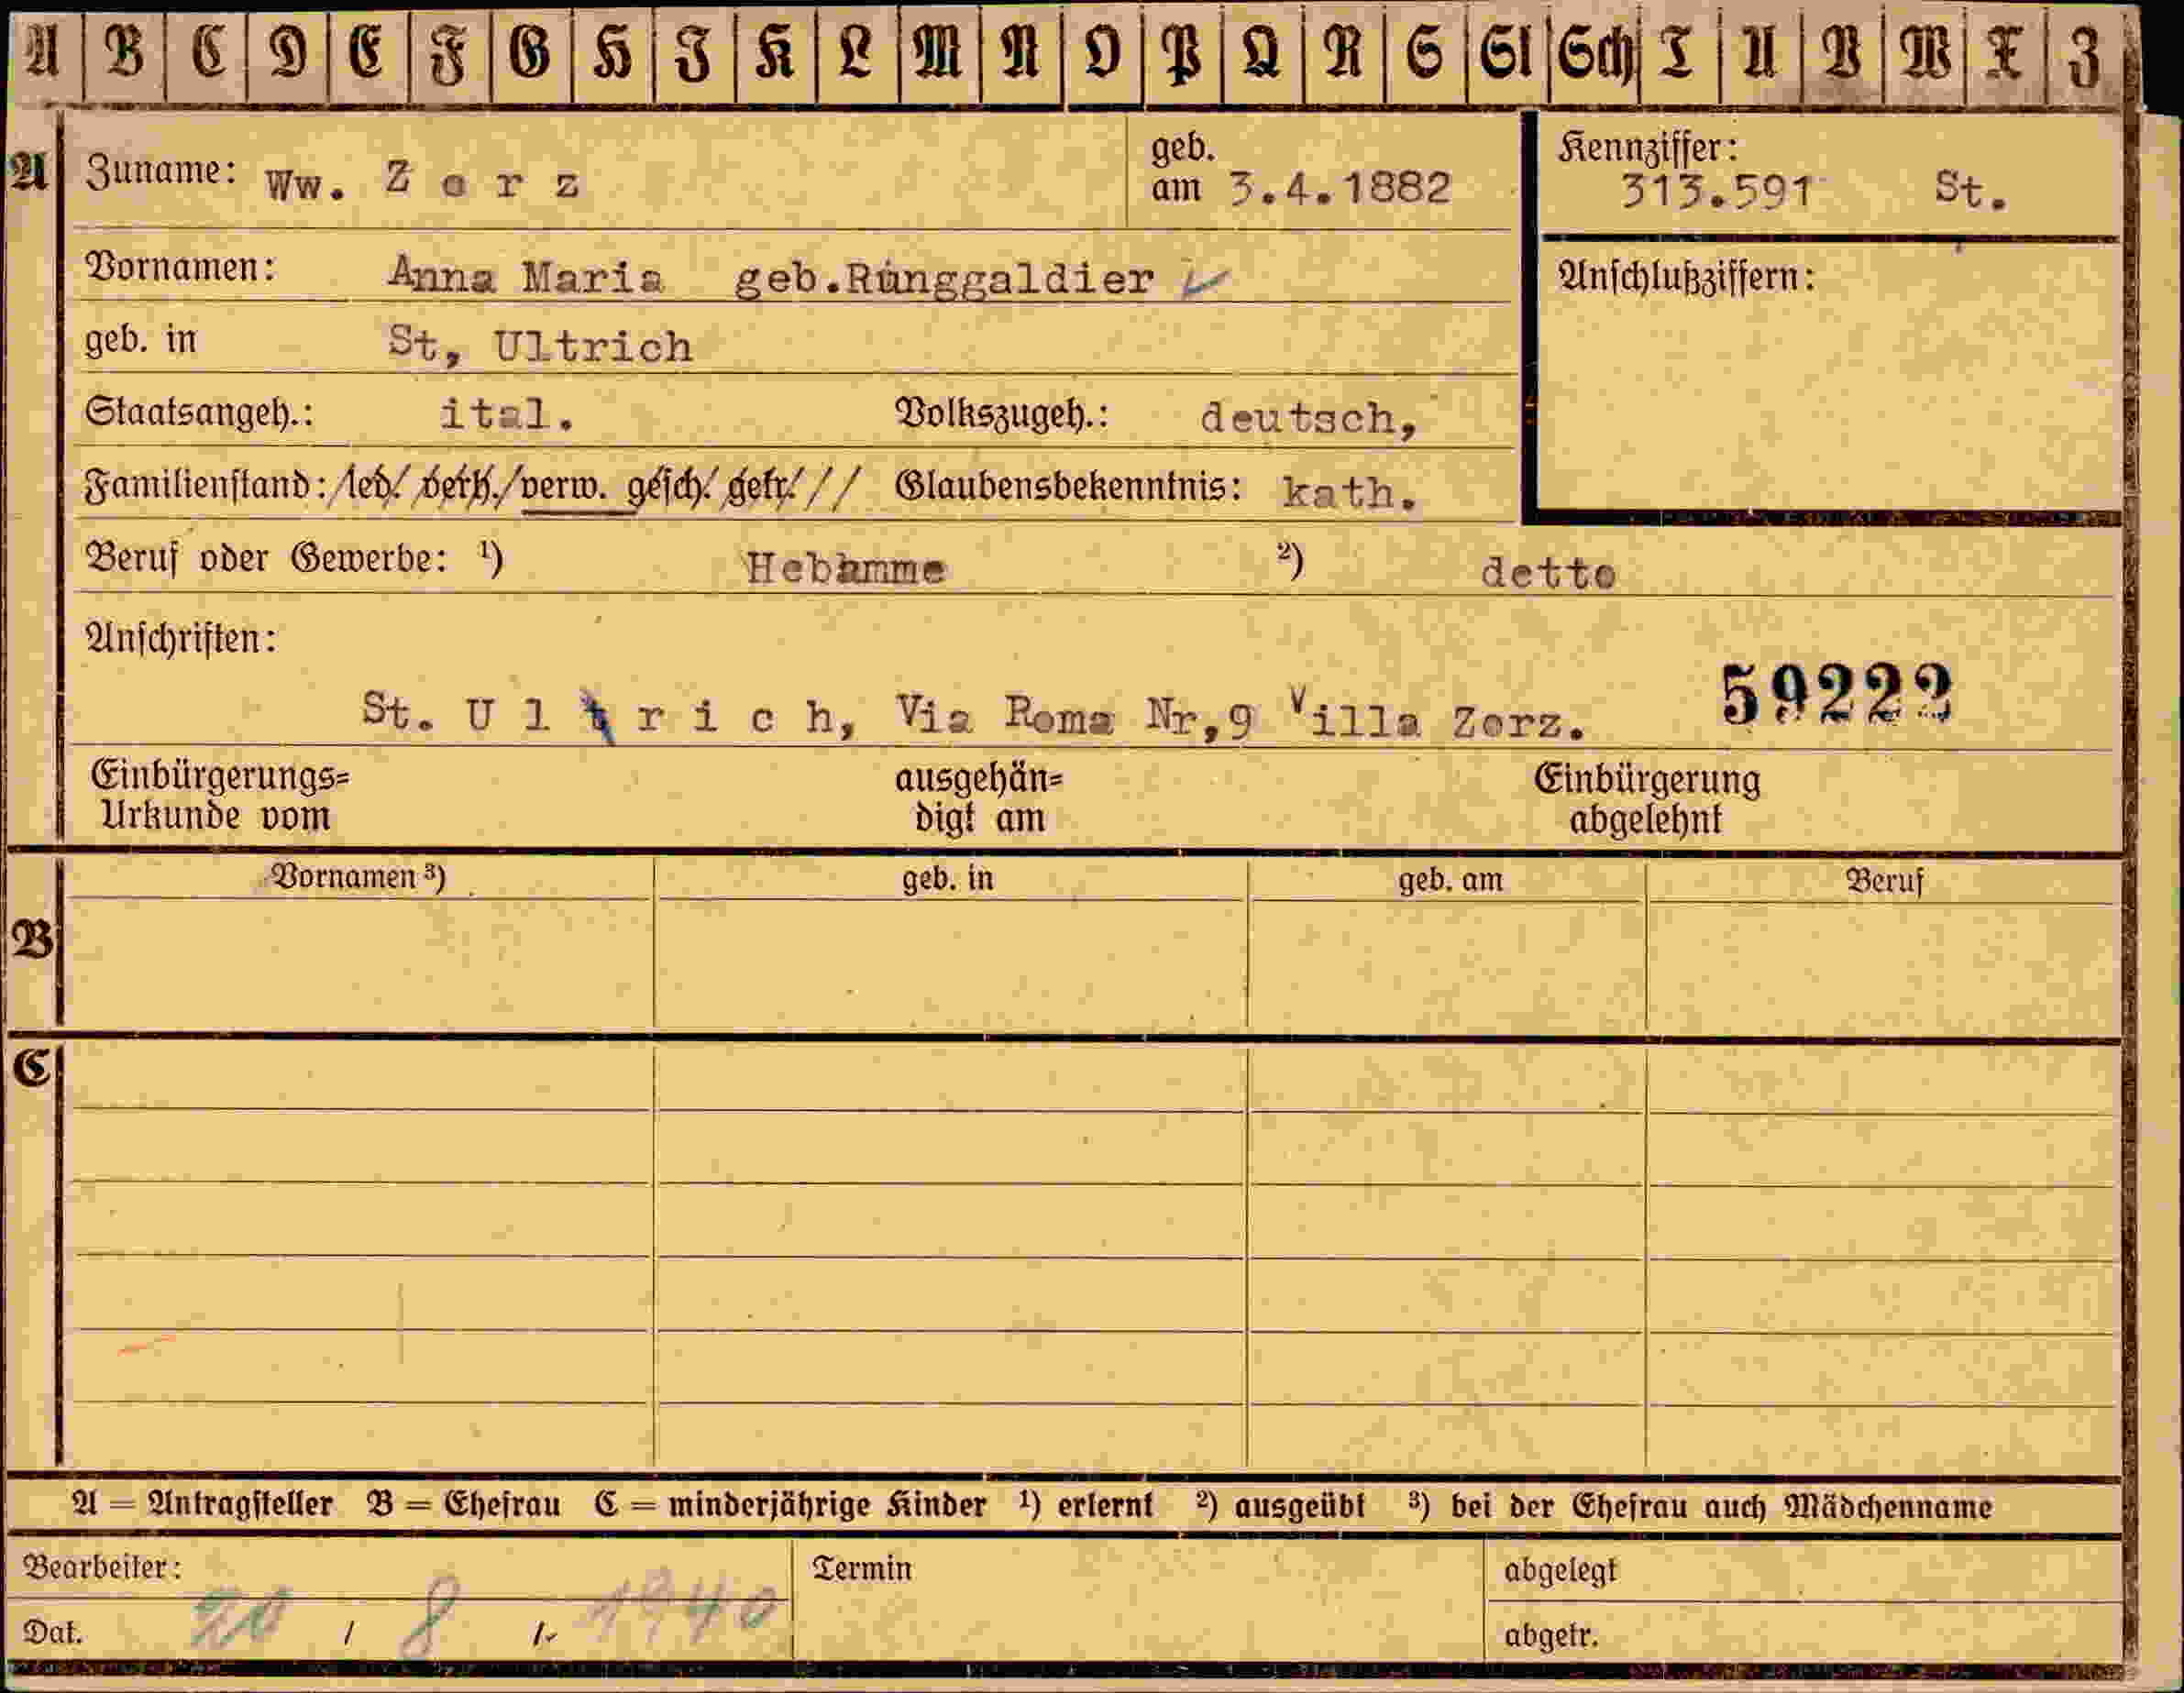 A B C D E F G H I K L M N O P Q R S St Sch T U V W X Z
A Zuname: Ww. Z o r z geb. am 3.4.1882 Kennziffer: 313.591 St.
Vornamen: Anna Maria geb.Runggaldier Anschlußziffern:
geb. in St, Ultrich
Staatsangeh.: ital. Volkszugeh.: deutsch,
Familienstand: led. verh. verw. gesch. getr. Glaubensbekenntnis: kath.
Beruf oder Gewerbe: ¹) Hebamme ²) detto
Anschriften:
St. U l t r i c h, Via Roma Nr,9 Villa Zorz. 59222
Einbürgerungs=
Urkunde vom
ausgehän=
digt am
Einbürgerung
abgelehnt
B Vornamen ³) geb. in geb. am Beruf
C
A = Antragsteller B = Ehefrau C = minderjährige Kinder ¹) erlernt ²) ausgeübt ³) bei der Ehefrau auch Mädchenname
Bearbeiter: Termin abgelegt
Dat. 20 / 8 /. 1940 abgetr.